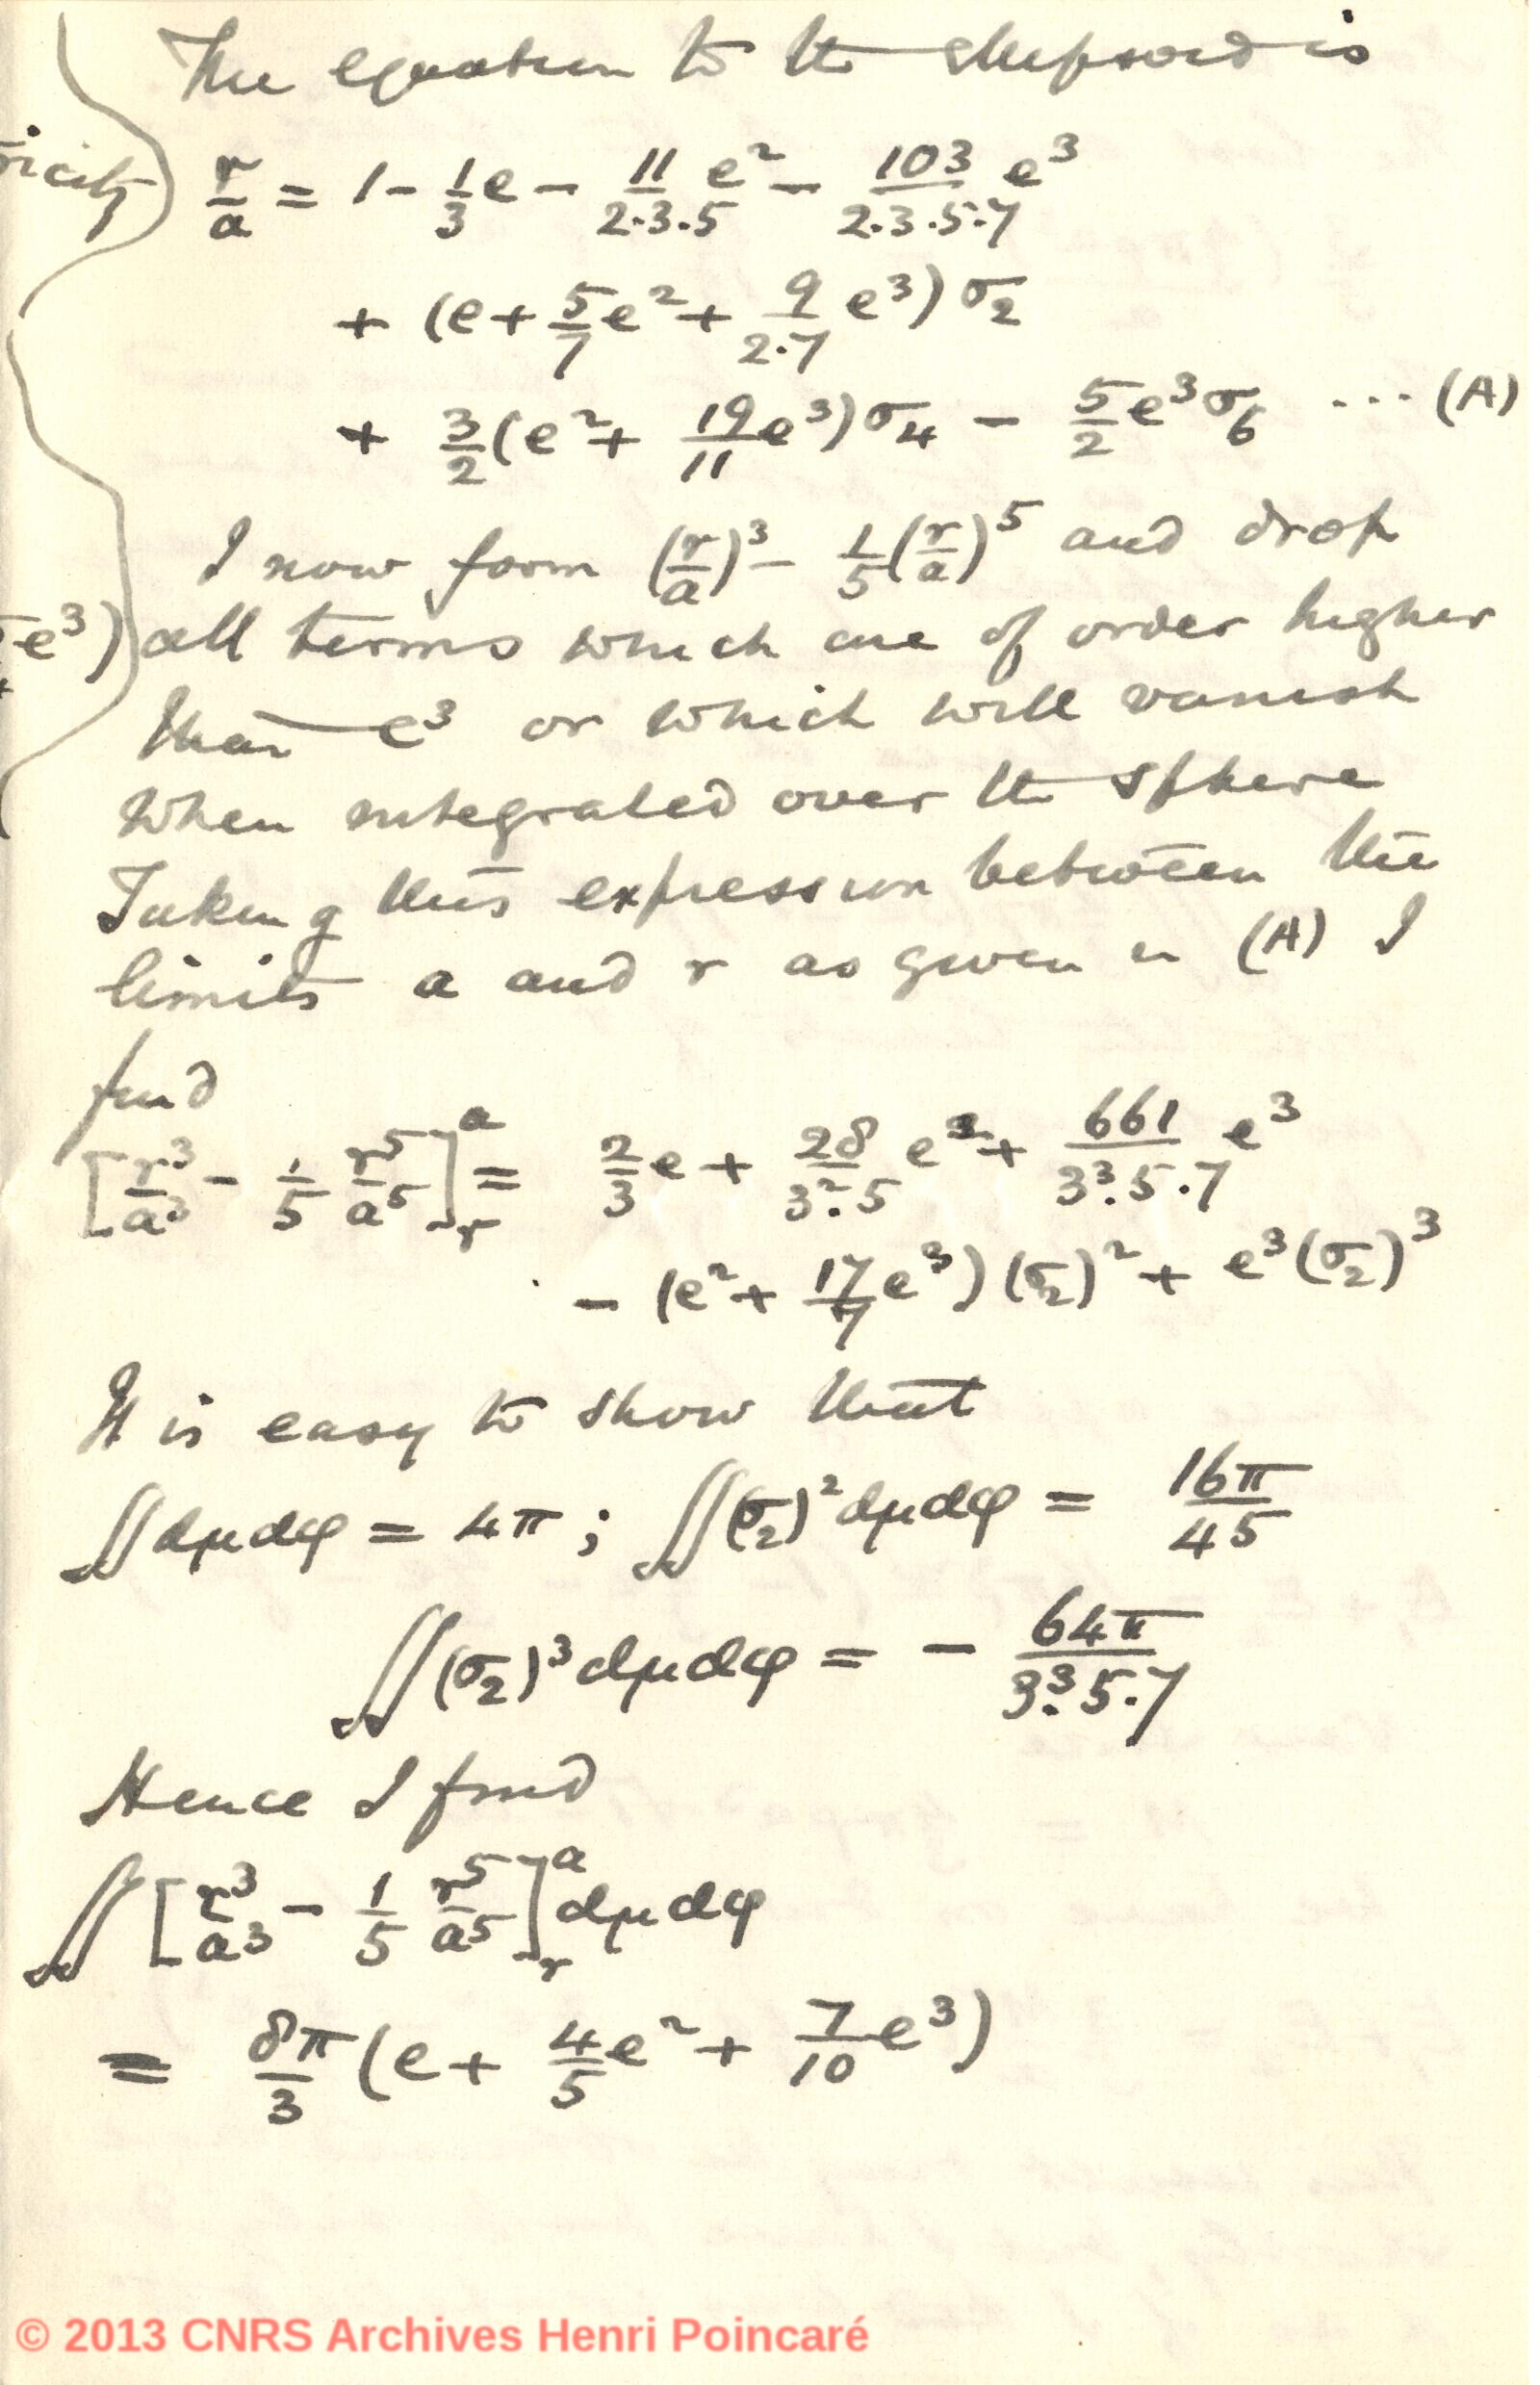 The equation to the ellipsoid is
ricity) r/a = 1 - 1/3 e - 11/2·3·5 e² - 103/2·3·5·7 e³
+ (e + 5/7 e² + 9/2·7 e³) σ₂
+ 3/2 (e² + 19/11 e³) σ₄ - 5/2 e³ σ₆ ... (A)
I now form (r/a)³ - 1/5 (r/a)⁵ and drop
e³) all terms which are of order higher
than e³ or which will vanish
when integrated over the sphere
Taking this expression between the
limits a and r as given in (A) I
find
[r³/a³ - 1/5 r⁵/a⁵]ᵃᵣ = 2/3 e + 28/3²·5 e² + 661/3³·5·7 e³
- (e² + 17/7 e³) (σ₂)² + e³ (σ₂)³
It is easy to show that
∬dμdφ = 4π ; ∬(σ₂)² dμdφ = 16π/45
∬(σ₂)³ dμdφ = - 64π/3³·5·7
Hence I find
∬ [r³/a³ - 1/5 r⁵/a⁵]ᵃᵣ dμdφ
= 8π/3 (e + 4/5 e² + 7/10 e³)
© 2013 CNRS Archives Henri Poincaré